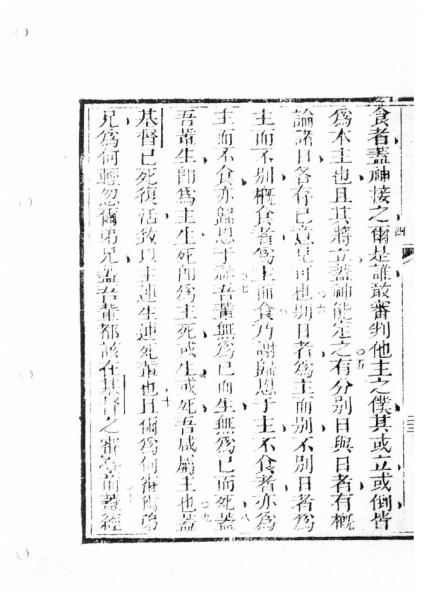 食者蓋神接之爾是誰敢審判他主之僕其或立或倒皆
爲本主也且其將立蓋神能定之有分別日與日者有概
論諸日各存己意是可也別日者爲主而別不別日者爲
主而不別概食者爲主而食乃謝歸恩于主不食者亦爲
主而不食亦歸恩于神吾輩無爲己而生無爲己而死蓋
吾輩生卽爲主生死卽爲主死或生或死吾咸屬主也蓋
基督已死復活致以主連生連死輩也且爾爲何審爾弟
兄爲何輕忽爾弟兄蓋吾輩都該在基督之審臺前蓋經